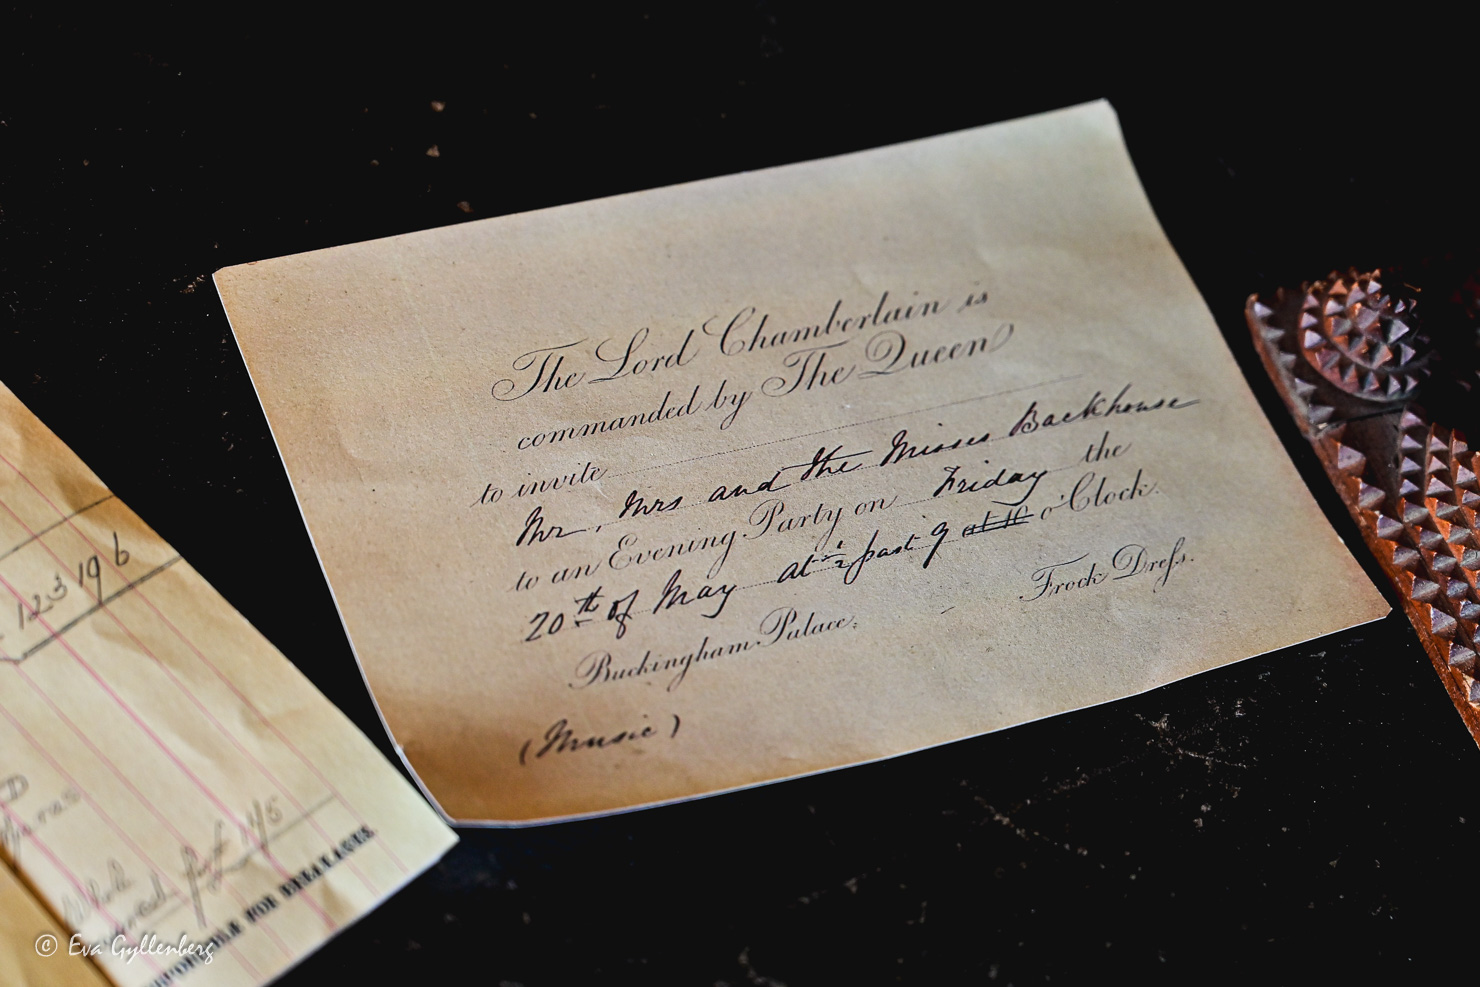 The Lord Chamberlain is
commanded by The Queen
to invite
Mr, Mrs and the Misses Backhouse
to an Evening Party on Friday the
20th of May at ½ past 9 ~~at 10~~ o'Clock.
Buckingham Palace. Frock Dreſs.
(Music)
123 19 6
FOR BREAKAGES.
© Eva Gyllenberg